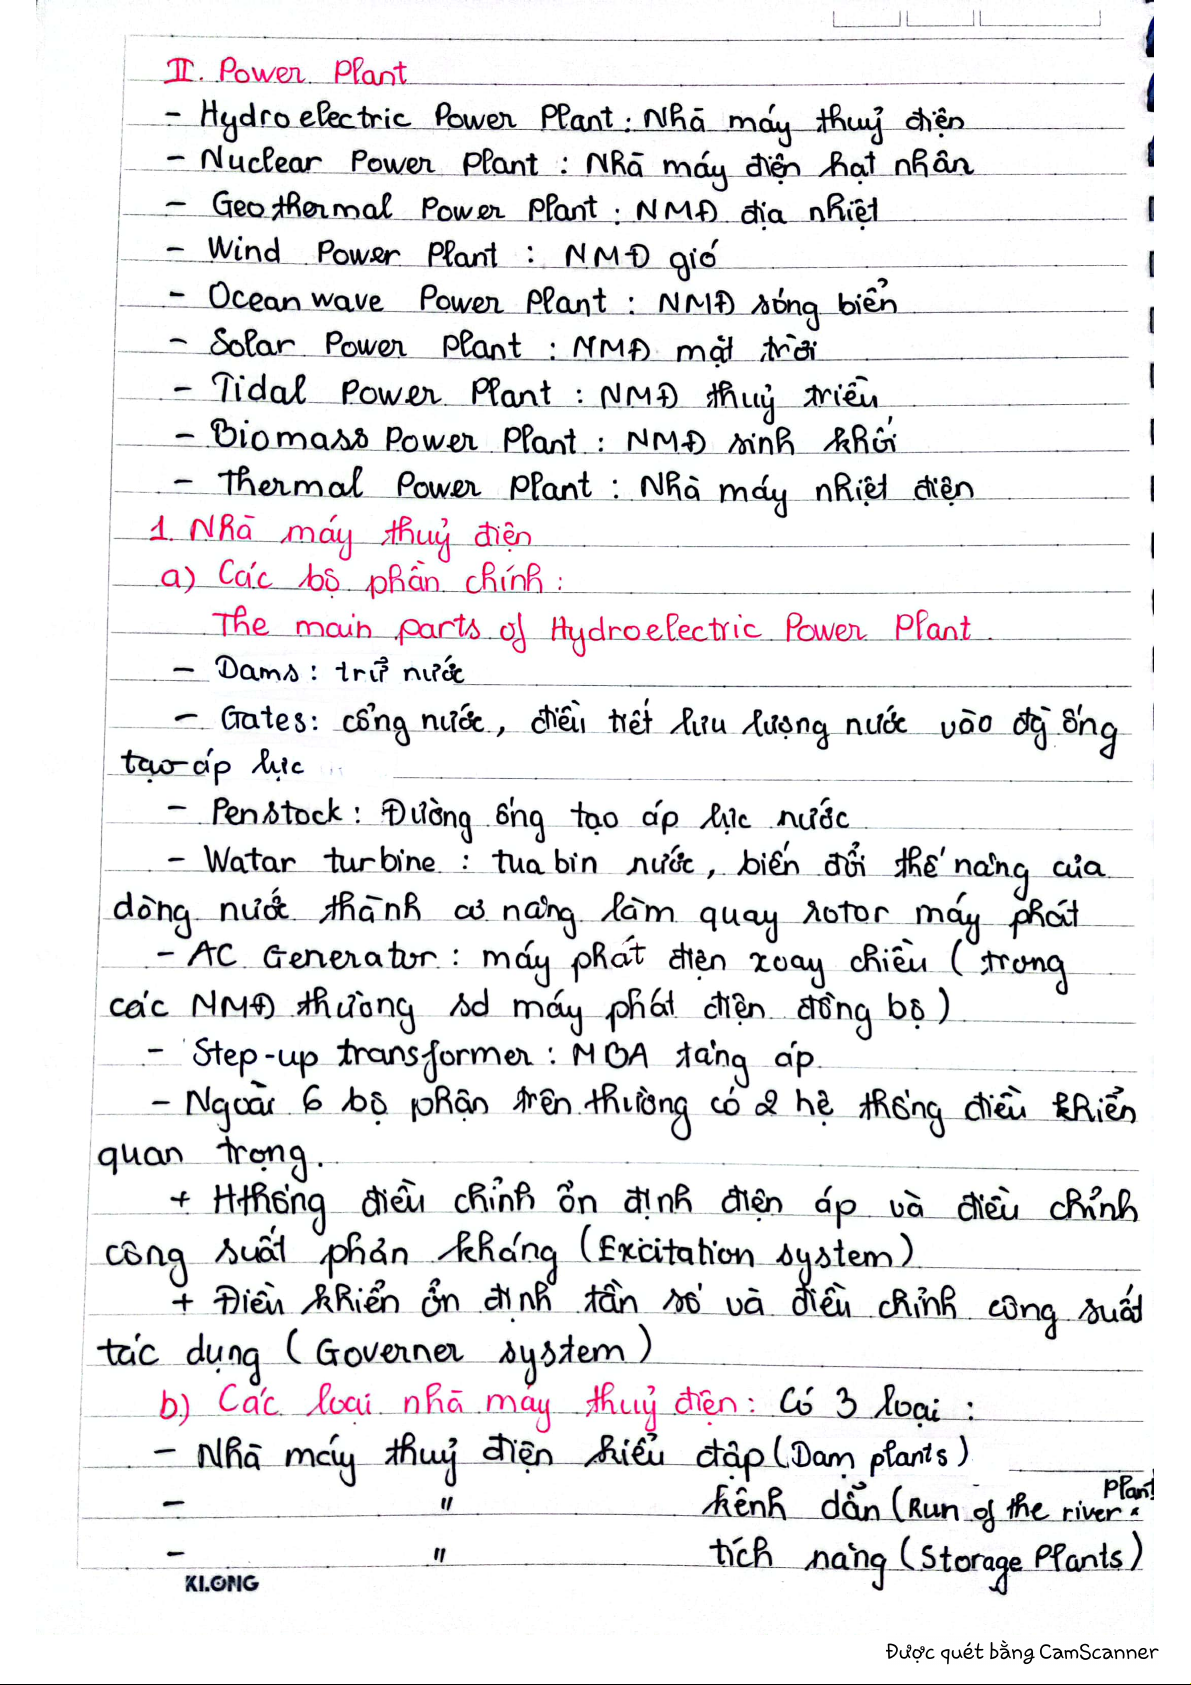 II. Power Plant
- Hydroelectric Power Plant: Nhà máy thuỷ điện
- Nuclear Power Plant : Nhà máy điện hạt nhân
- Geothermal Power Plant : NMĐ địa nhiệt
- Wind Power Plant : NMĐ gió
- Ocean wave Power Plant : NMĐ sóng biển
- Solar Power Plant : NMĐ mặt trời
- Tidal Power Plant : NMĐ thuỷ triều
- Biomass Power Plant : NMĐ sinh khối
- Thermal Power Plant : Nhà máy nhiệt điện
1. Nhà máy thuỷ điện
a) Các bộ phần chính :
The main parts of Hydroelectric Power Plant
- Dams : trữ nước
- Gates: cổng nước, điều tiết lưu lượng nước vào đg ống
tạo áp lực
- Penstock : Đường ống tạo áp lực nước
- Watar turbine : tua bin nước, biến đổi thế năng của
dòng nước thành cơ năng làm quay rotor máy phát
- AC Generator : máy phát điện xoay chiều ( trong
các NMĐ thường sd máy phát điện đồng bộ )
- Step-up transformer : MBA tăng áp
- Ngoài 6 bộ phận trên thường có 2 hệ thống điều khiển
quan trọng.
+ Hthống điều chỉnh ổn định điện áp và điều chỉnh
công suất phản kháng (Excitation system)
+ Điều khiển ổn định tần số và điều chỉnh công suất
tác dụng ( Governer system )
b) Các loại nhà máy thuỷ điện : Có 3 loại :
- Nhà máy thuỷ điện kiểu đập (Dam plants)
- " kênh dẫn (Run of the river plant
- " tích năng (Storage Plants)
KLONG
Được quét bằng CamScanner